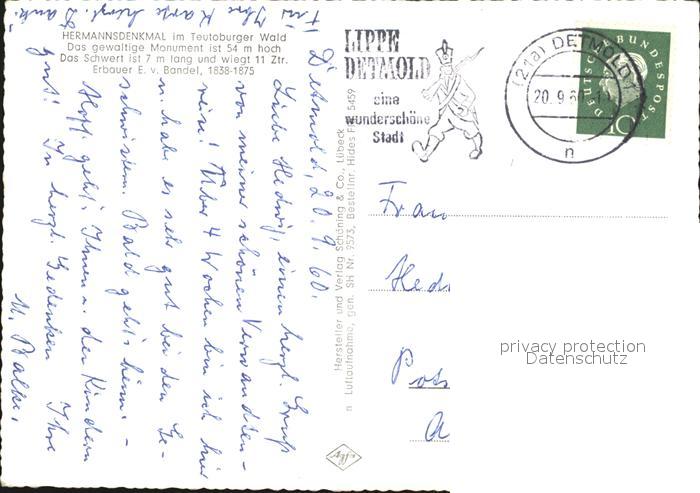 HERMANNSDENKMAL im Teutoburger Wald
Das gewaltige Monument ist 54 m hoch
Das Schwert ist 7 m lang und wiegt 11 Ztr.
Erbauer E. v. Bandel, 1838-1875
LIPPE
DETMOLD
eine
wunderschöne
Stadt
(21a) DETMOLD 1
20.9.60
n
DEUTSCHE BUNDESPOST
10
Detmold, 20. 9. 60.
Liebe Hedwig, einen herzl. Gruß
von meiner schönen Verwandten-
reise! Über 4 Wochen bin ich hier
u. hab es sehr gut bei den Ge-
schwistern. Bald geht's heim. -
Hoff. geht's Ihnen u. den Kindern
gut! In herzl. Gedenken Ihre
M. Balke.
Für Ihre Karte herzl. Dank!
Hersteller und Verlag Schöning & Co., Lübeck
n Luftaufnahme, gen. SH Nr. 9573, Bestellnr. Hides F 5459
Frau
Hed
Pos
A
privacy protection
Datenschutz